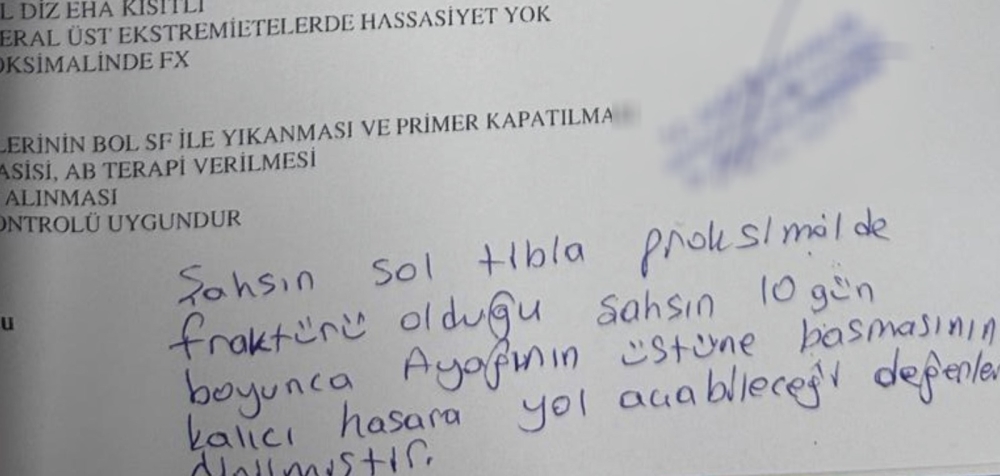 L DİZ EHA KISITLI
ERAL ÜST EKSTREMİETELERDE HASSASİYET YOK
OKSİMALİNDE FX
LERİNİN BOL SF İLE YIKANMASI VE PRİMER KAPATILMA
ASİSİ, AB TERAPİ VERİLMESİ
ALINMASI
ONTROLÜ UYGUNDUR
u
Şahsın sol tıbla proksimalde
fraktürü olduğu şahsın 10 gün
boyunca Ayağının üstüne basmasının
kalıcı hasara yol açabileceği değerlen
dirilmiştir.